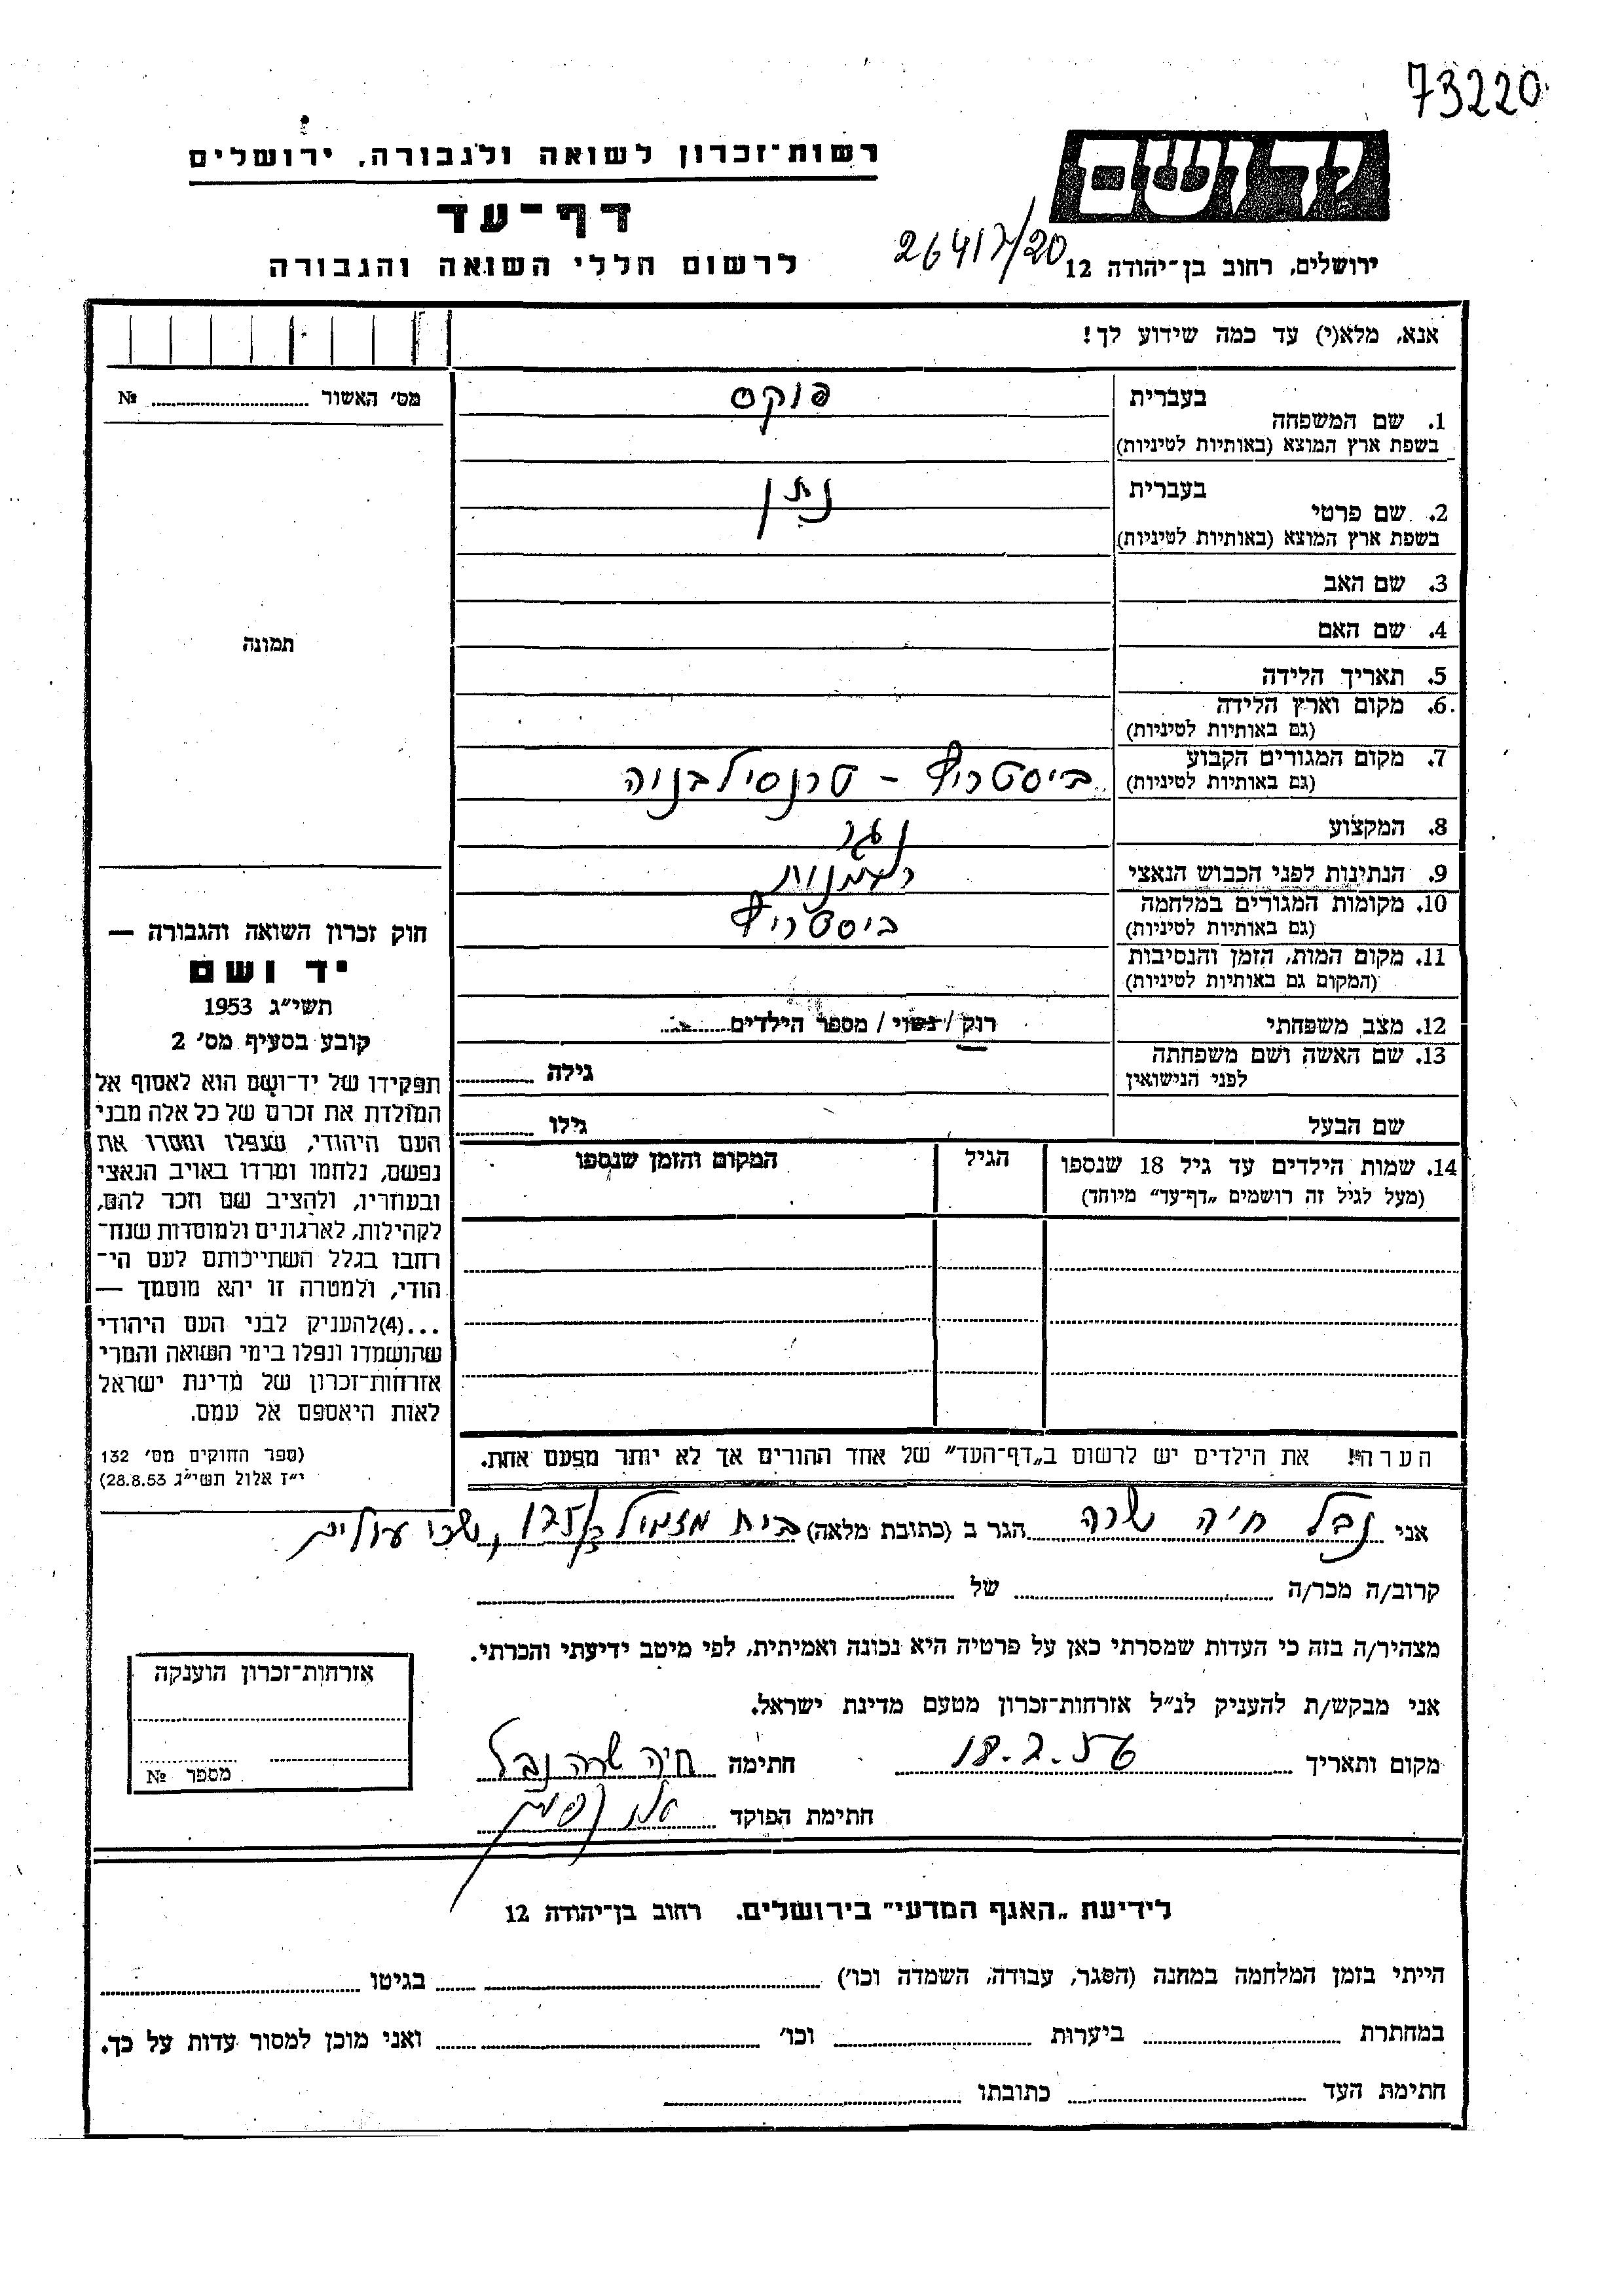 73220
יד ושם
רשות־זכרון לשואה ולגבורה, ירושלים
דף־עד
לרשום חללי השואה והגבורה
26417/20
ירושלים, רחוב בן־יהודה 12
אנא, מלא(י) עד כמה שידוע לך!
מס׳ האשור ........ №
1. שם המשפחה
בעברית
פוקס
בשפת ארץ המוצא (באותיות לטיניות)
2. שם פרטי
בעברית
נתן
בשפת ארץ המוצא (באותיות לטיניות)
3. שם האב
4. שם האם
תמונה
5. תאריך הלידה
6. מקום וארץ הלידה
(גם באותיות לטיניות)
7. מקום המגורים הקבוע
(גם באותיות לטיניות)
ביסטריץ – טרנסילבניה
8. המקצוע
נגר
9. הנתינות לפני הכבוש הנאצי
10. מקומות המגורים במלחמה
(גם באותיות לטיניות)
ביסטריץ
11. מקום המות, הזמן והנסיבות
(המקום גם באותיות לטיניות)
12. מצב משפחתי
רוק / נשוי / מספר הילדים........
13. שם האשה ושם משפחתה
לפני הנישואין
גילה ........
שם הבעל
גילו ........
14. שמות הילדים עד גיל 18 שנספו
(מעל לגיל זה רושמים „דף־עד״ מיוחד)
הגיל
המקום והזמן שנספו
חוק זכרון השואה והגבורה —
יד ושם
תשי״ג 1953
קובע בסעיף מס׳ 2
תפקידו של יד־ושם הוא לאסוף אל
המולדת את זכרם של כל אלה מבני
העם היהודי, שנפלו ומסרו את
נפשם, נלחמו ומרדו באויב הנאצי
ובעוזריו, ולהציב שם וזכר להם,
לקהילות, לארגונים ולמוסדות שנח־
רחבו בגלל השתייכותם לעם הי־
הודי, ולמטרה זו יהא מוסמך —
...(4) להעניק לבני העם היהודי
שהושמדו ונפלו בימי השואה והמרי
אזרחות־זכרון של מדינת ישראל
לאות היאספם אל עמם.
(ספר החוקים מס׳ 132
י״ז אלול תשי״ג 28.8.53)
הערה! את הילדים יש לרשום ב„דף־העד״ של אחד ההורים אך לא יותר מפעם אחת.
אני נבל חיה שרה הגר ב (כתובת מלאה) בית מזמיל 125/ב, שכו עולים
קרוב/ה מכר/ה ........ של ........
מצהיר/ה בזה כי העדות שמסרתי כאן על פרטיה היא נכונה ואמיתית, לפי מיטב ידיעתי והכרתי.
אני מבקש/ת להעניק לנ״ל אזרחות־זכרון מטעם מדינת ישראל.
מקום ותאריך 18.2.56 חתימה חיה שרה נבל
חתימת הפוקד
אזרחות־זכרון הוענקה
מספר №
לידיעת „האגף המדעי״ בירושלים. רחוב בן־יהודה 12
הייתי בזמן המלחמה במחנה (הסגר, עבודה, השמדה וכו׳) ........ בגיטו ........
במחתרת ........ ביערות ........ וכו׳ ........ ואני מוכן למסור עדות על כך.
חתימת העד ........ כתובתו ........